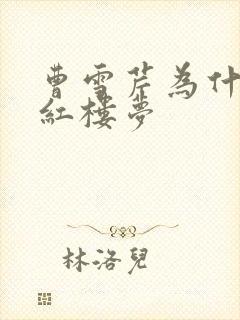 曹雪芹為什
紅樓夢
林洛兒